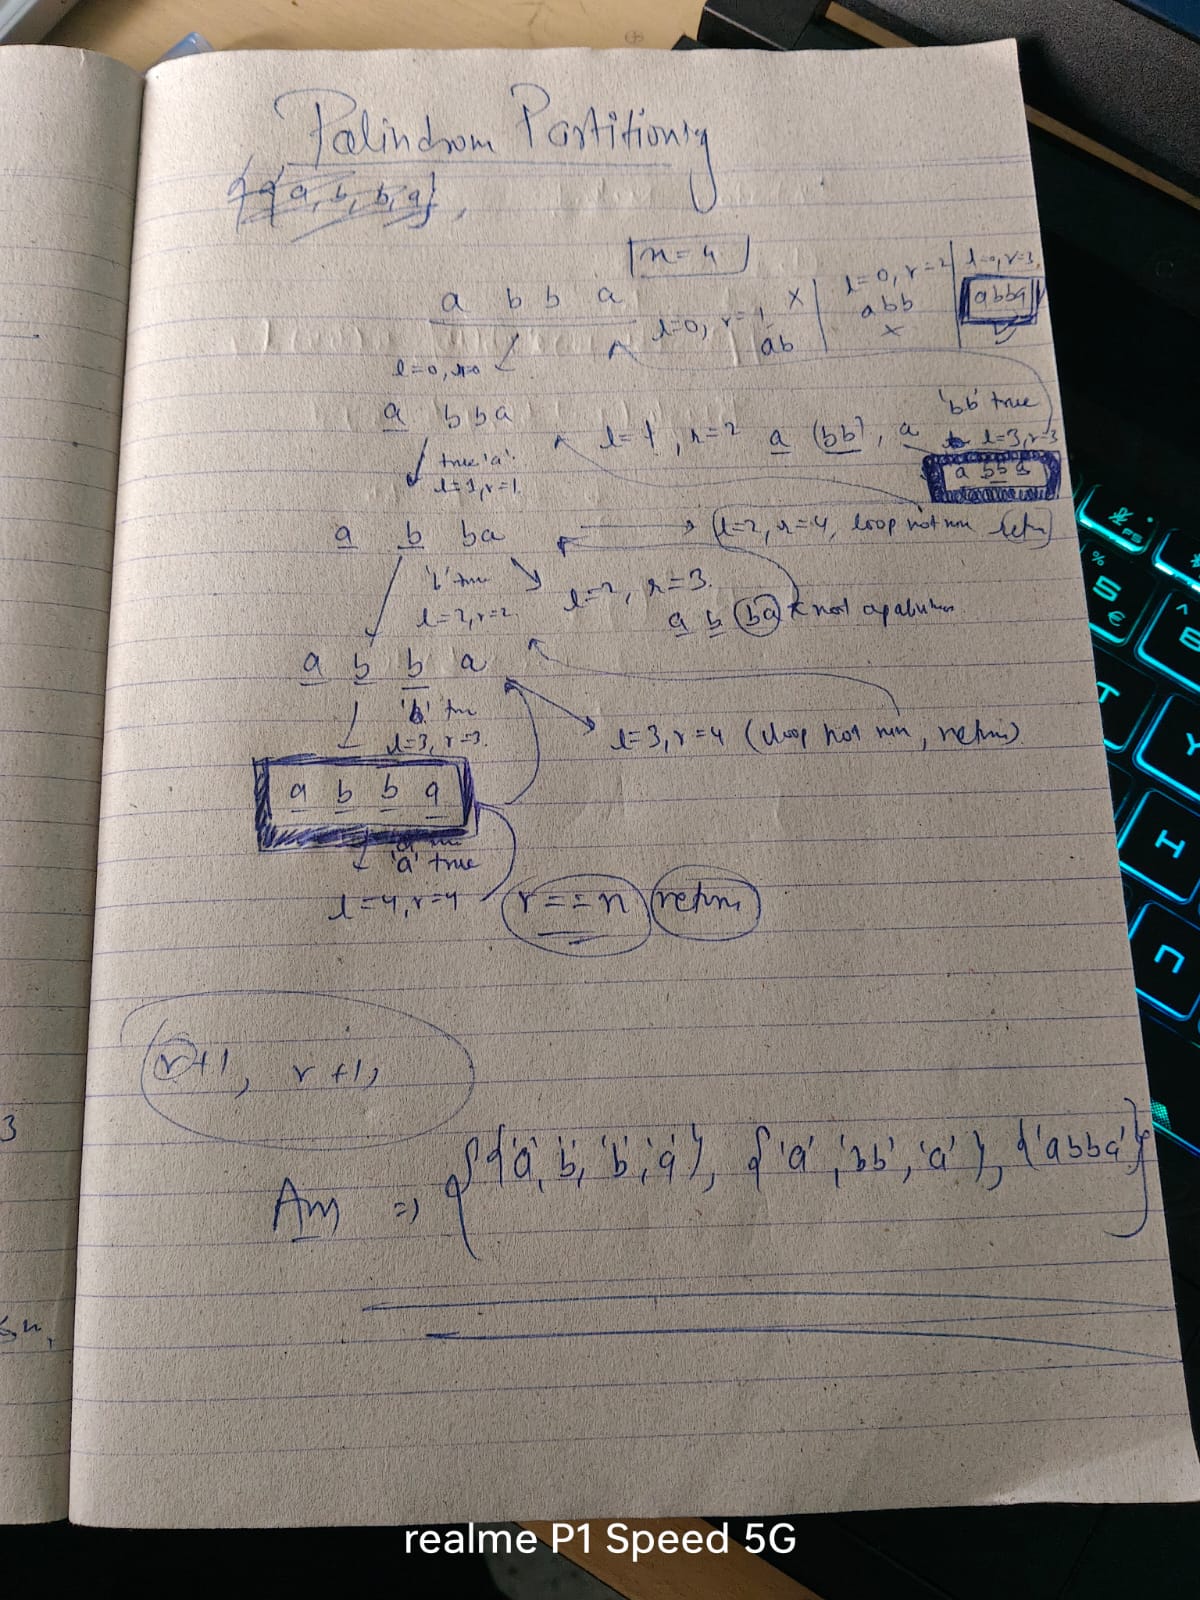 Palindrom Partitioning
{{a, b, b, a},
n=4
a b b a
l=0, r=1 X
ab
l=0, r=2
abb
x
l=0, r=3
abba
l=0, r=0
a bba
true 'a'
l=1, r=1
l=1, r=2 a (bb), a
'bb' true
l=3, r=3
a bb a
a b ba
l=2, r=4, loop not run retun
'b' true
l=2, r=2
l=2, r=3.
a b (ba) x not a
a b b a
'b' tru
l=3, r=3.
l=3, r=4 (loop not run, retun)
a b b a
'a' true
l=4, r=4
r==n return
r+1, r+1,
3
Ans => {{'a', 'b', 'b', 'a'}, {'a', 'bb', 'a'}, {'abba'}}
F5
%
5
€
^
6
T
Y
H
realme P1 Speed 5G